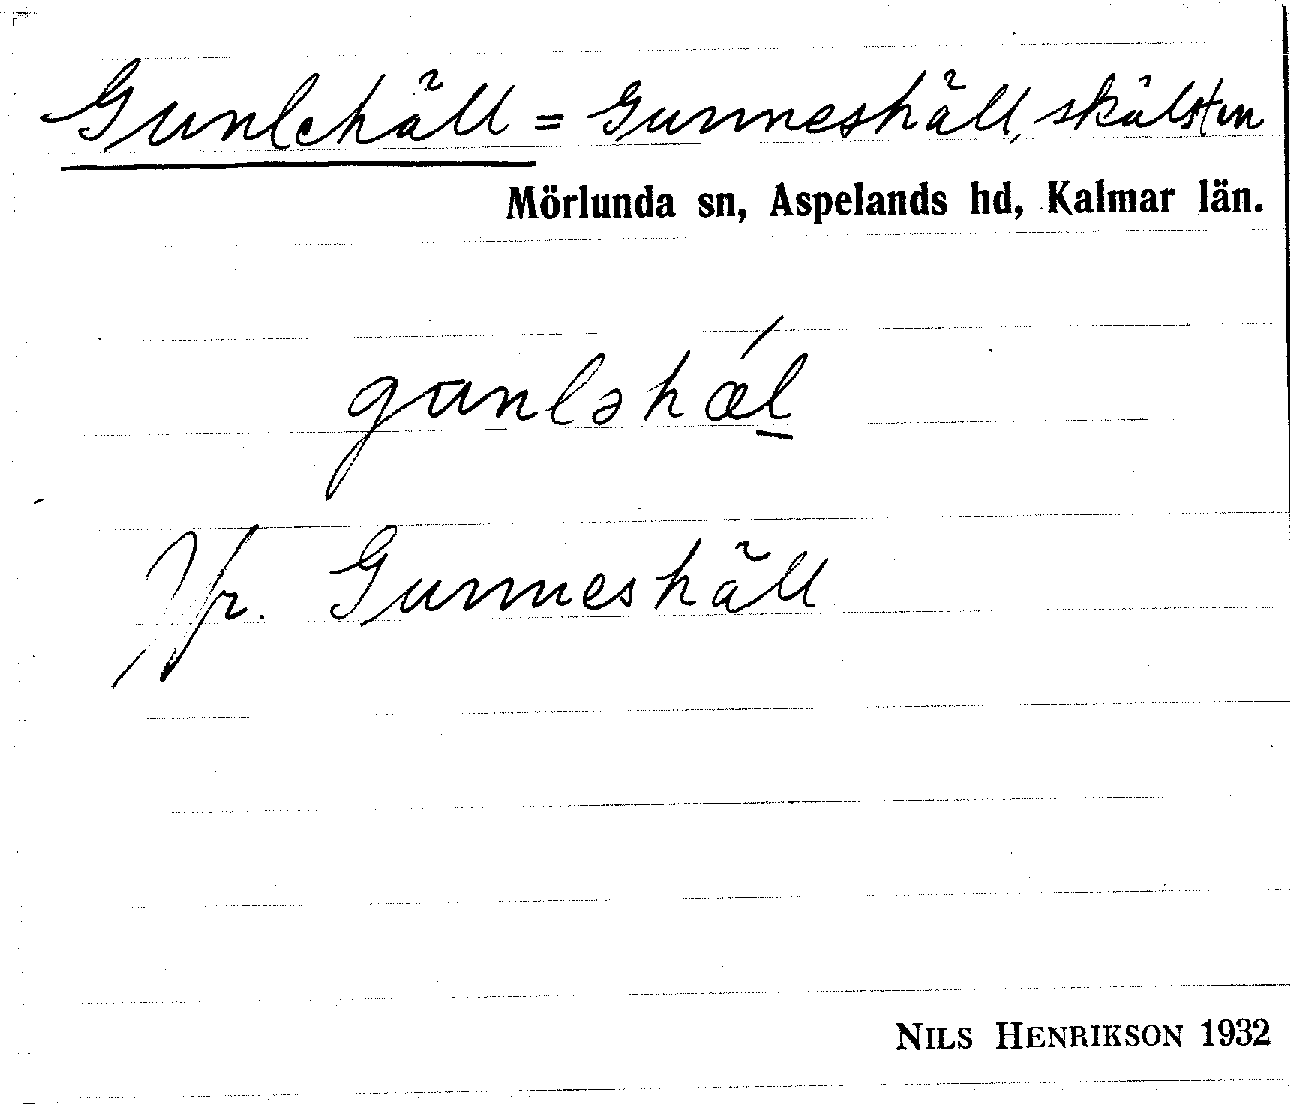 Gunlehäll = Gunneshäll, skålsten
Mörlunda sn, Aspelands hd, Kalmar län.
gɯnləhǽl̲
Jfr. Gunneshäll
NILS HENRIKSON 1932